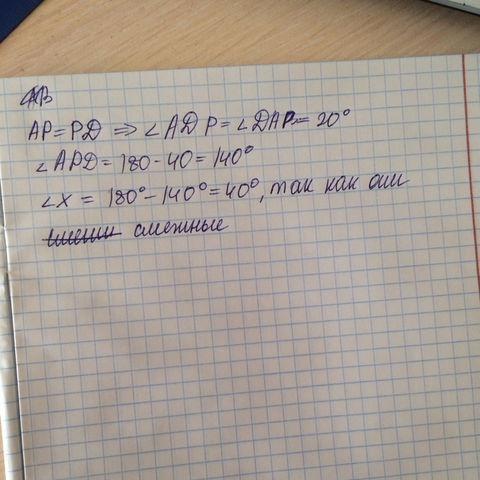 AP=PD ⇒ ∠ADP=∠DAP=20°
∠APD=180-40=140°
∠X = 180°-140°=40°, так как они
смежные